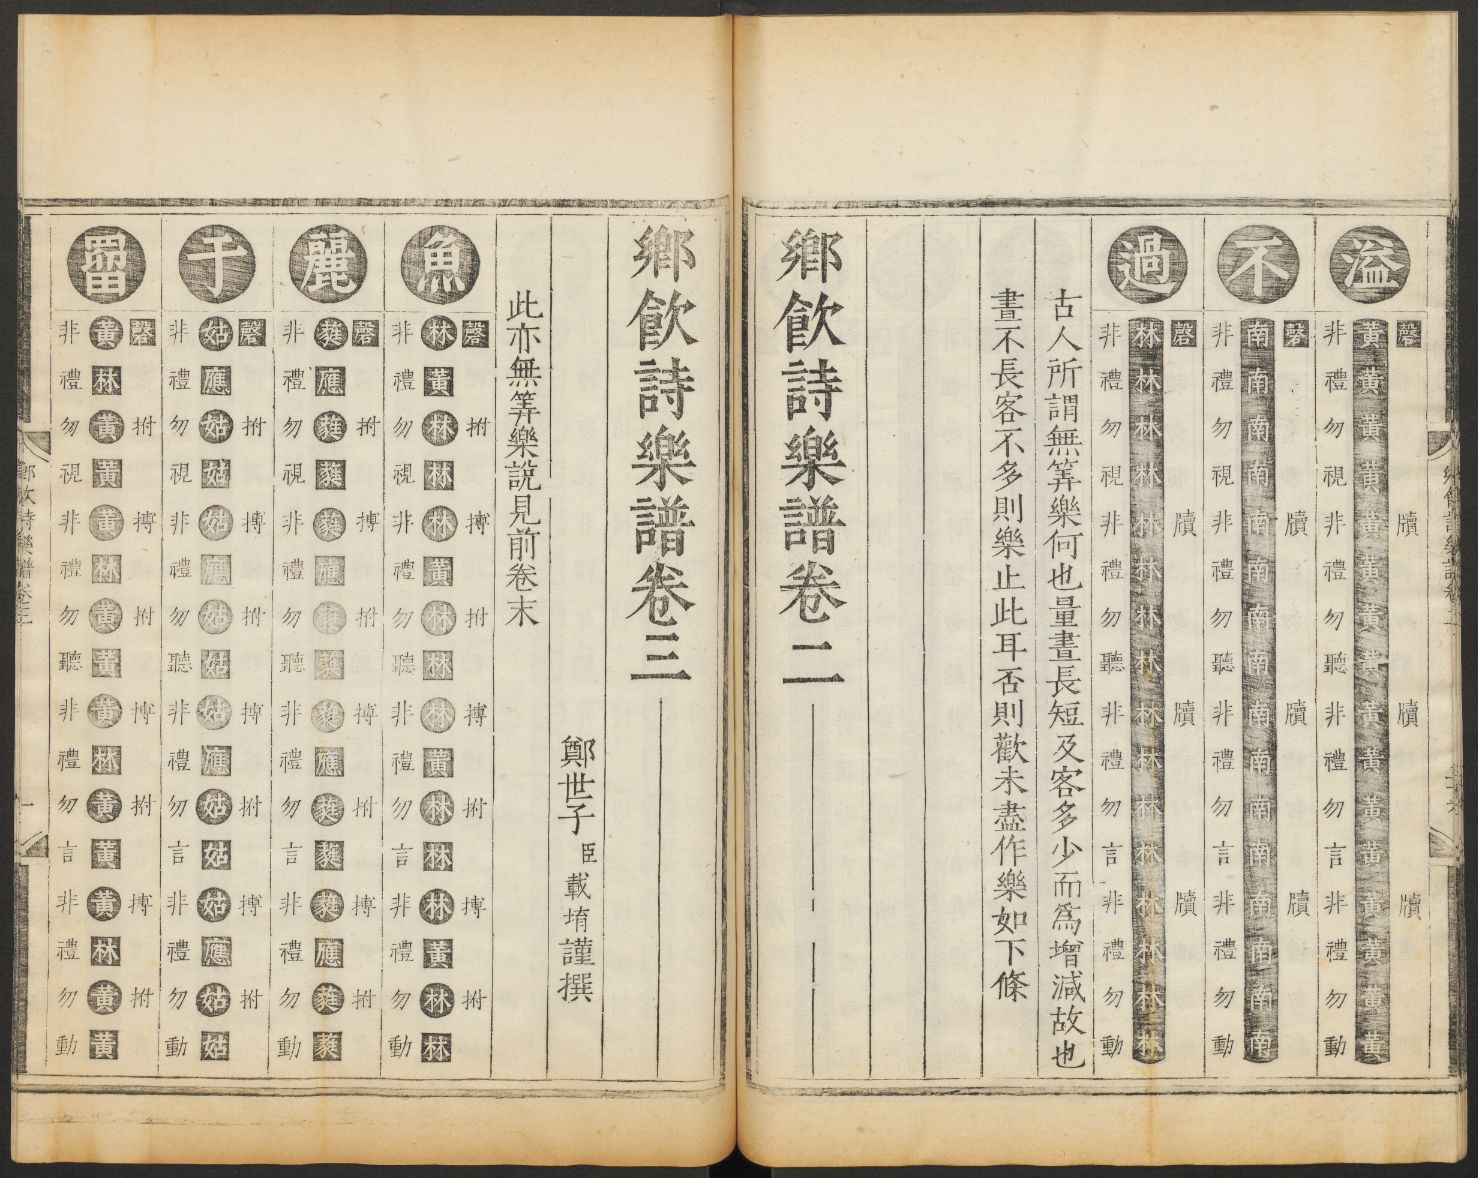 溢
磬牘牘牘
黃黃黃黃黃黃黃黃黃黃黃黃黃黃黃黃
非禮勿視非禮勿聽非禮勿言非禮勿動
不
磬牘牘牘
南南南南南南南南南南南南南南南南
非禮勿視非禮勿聽非禮勿言非禮勿動
過
磬牘牘牘
林林林林林林林林林林林林林林林林
非禮勿視非禮勿聽非禮勿言非禮勿動
古人所謂無筭樂何也量晝長短及客多少而為增減故也
晝不長客不多則樂止此耳否則歡未盡作樂如下條
鄉飲詩樂譜卷二
鄉飲詩樂譜卷三
鄭世子臣載堉謹撰
此亦無筭樂說見前卷末
魚
磬拊搏拊搏拊搏拊
林黃林林林黃林林林黃林林林黃林林
非禮勿視非禮勿聽非禮勿言非禮勿動
麗
磬拊搏拊搏拊搏拊
蕤應蕤蕤蕤應蕤蕤蕤應蕤蕤蕤應蕤蕤
非禮勿視非禮勿聽非禮勿言非禮勿動
于
磬拊搏拊搏拊搏拊
姑應姑姑姑應姑姑姑應姑姑姑應姑姑
非禮勿視非禮勿聽非禮勿言非禮勿動
罶
磬拊搏拊搏拊搏拊
黃林黃黃黃林黃黃黃林黃黃黃林黃黃
非禮勿視非禮勿聽非禮勿言非禮勿動
鄉飲詩樂譜卷三
一